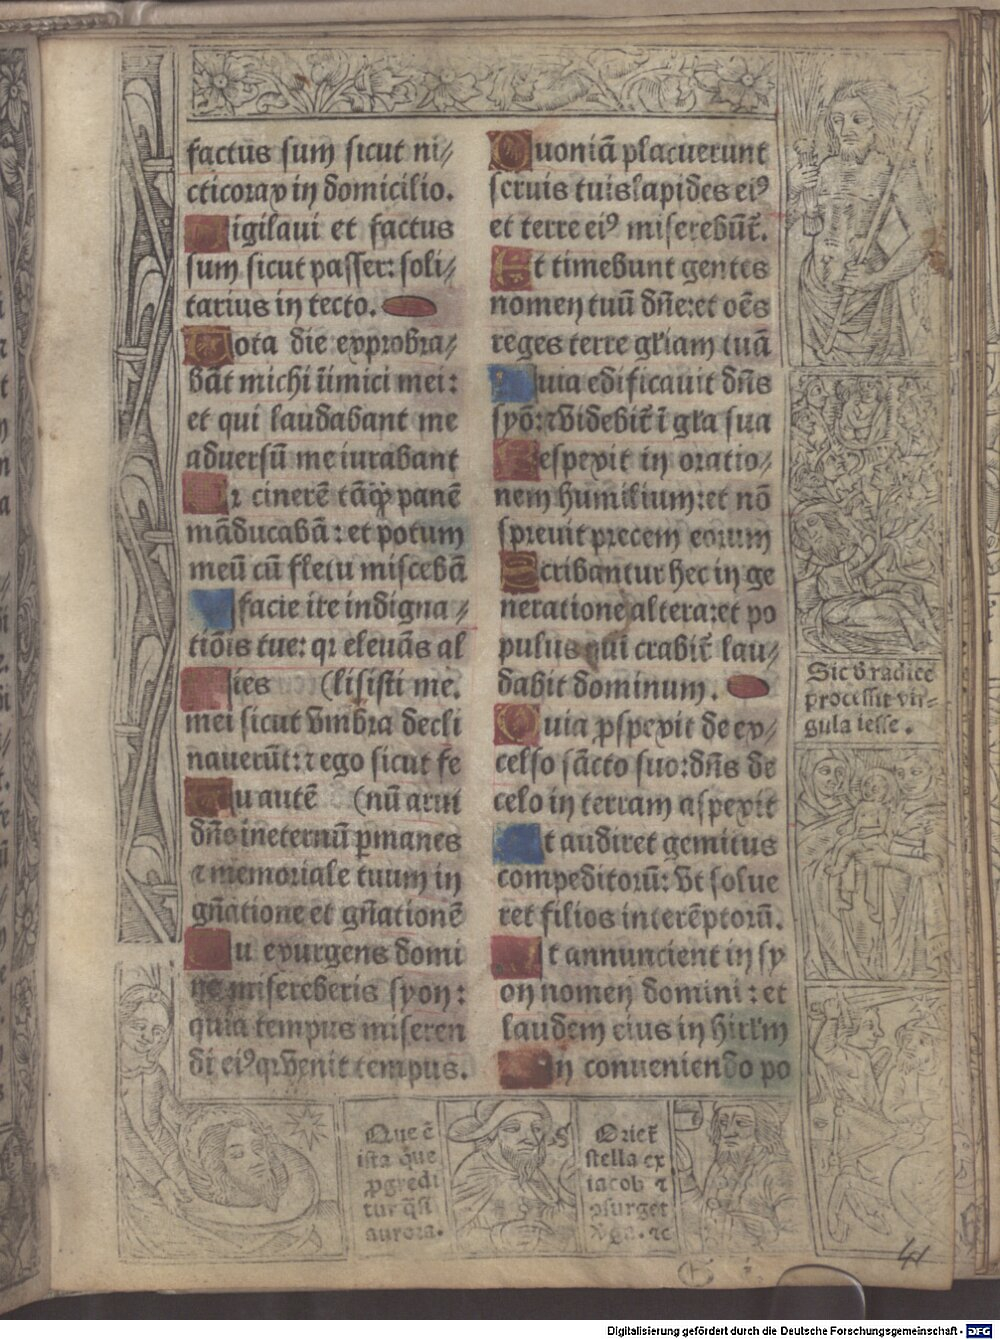 factus sum sicut ni//
cticorax in domicilio.
Vigilaui et factus
sum sicut passer: soli//
tarius in tecto.
Tota die exprobra//
bāt michi īimici mei:
et qui laudabant me
aduersū me iurabant
Qr cinerē tāq̄ȝ panē
māducabā: et potum
meū cū fletu miscebā
A facie ire indigna//
tiōis tue: qr eleuās al
Dies (lisisti me.
mei sicut vmbra decli
nauerūt: ⁊ ego sicut fe
Tu autē (nū arui
dn̄s in eternū ꝑmanes
⁊ memoriale tuum in
gn̄atione et gn̄ationē
Tu exurgens domi
ne misereberis syon:
quia tempus miseren
di eiꝰ qr venit tempus.
Quoniā placuerunt
seruis tuis lapides eiꝰ
et terre eiꝰ miserebūt̄.
Et timebunt gentes
nomen tuū dn̄e: et oēs
reges terre gl'iam tuā
Quia edificauit dn̄s
syō: ⁊ videbit̄ ī gl'a sua
Respexit in oratio//
nem humilium: et nō
spreuit precem eorum
Scribantur hec in ge
neratione altera: et po
pulus qui crabit̄ lau//
dabit dominum.
Quia ꝓspexit de ex//
celso sācto suo: dn̄s de
celo in terram aspexit
Ut audiret gemitus
compeditorū: vt solue
ret filios interēptorū.
Ut annuncient in sy
on nomen domini: et
laudem eius in hirl'm
In conueniendo po
Sic ð radice
processit vir-
gula iesse.
Que ē
ista q̄ue
ꝓgredi
tur q̄si
aurora.
Oriet̄
stella ex
iacob ⁊
ꝯsurget
v̄ga. ⁊c
41
Digitalisierung gefördert durch die Deutsche Forschungsgemeinschaft - DFG